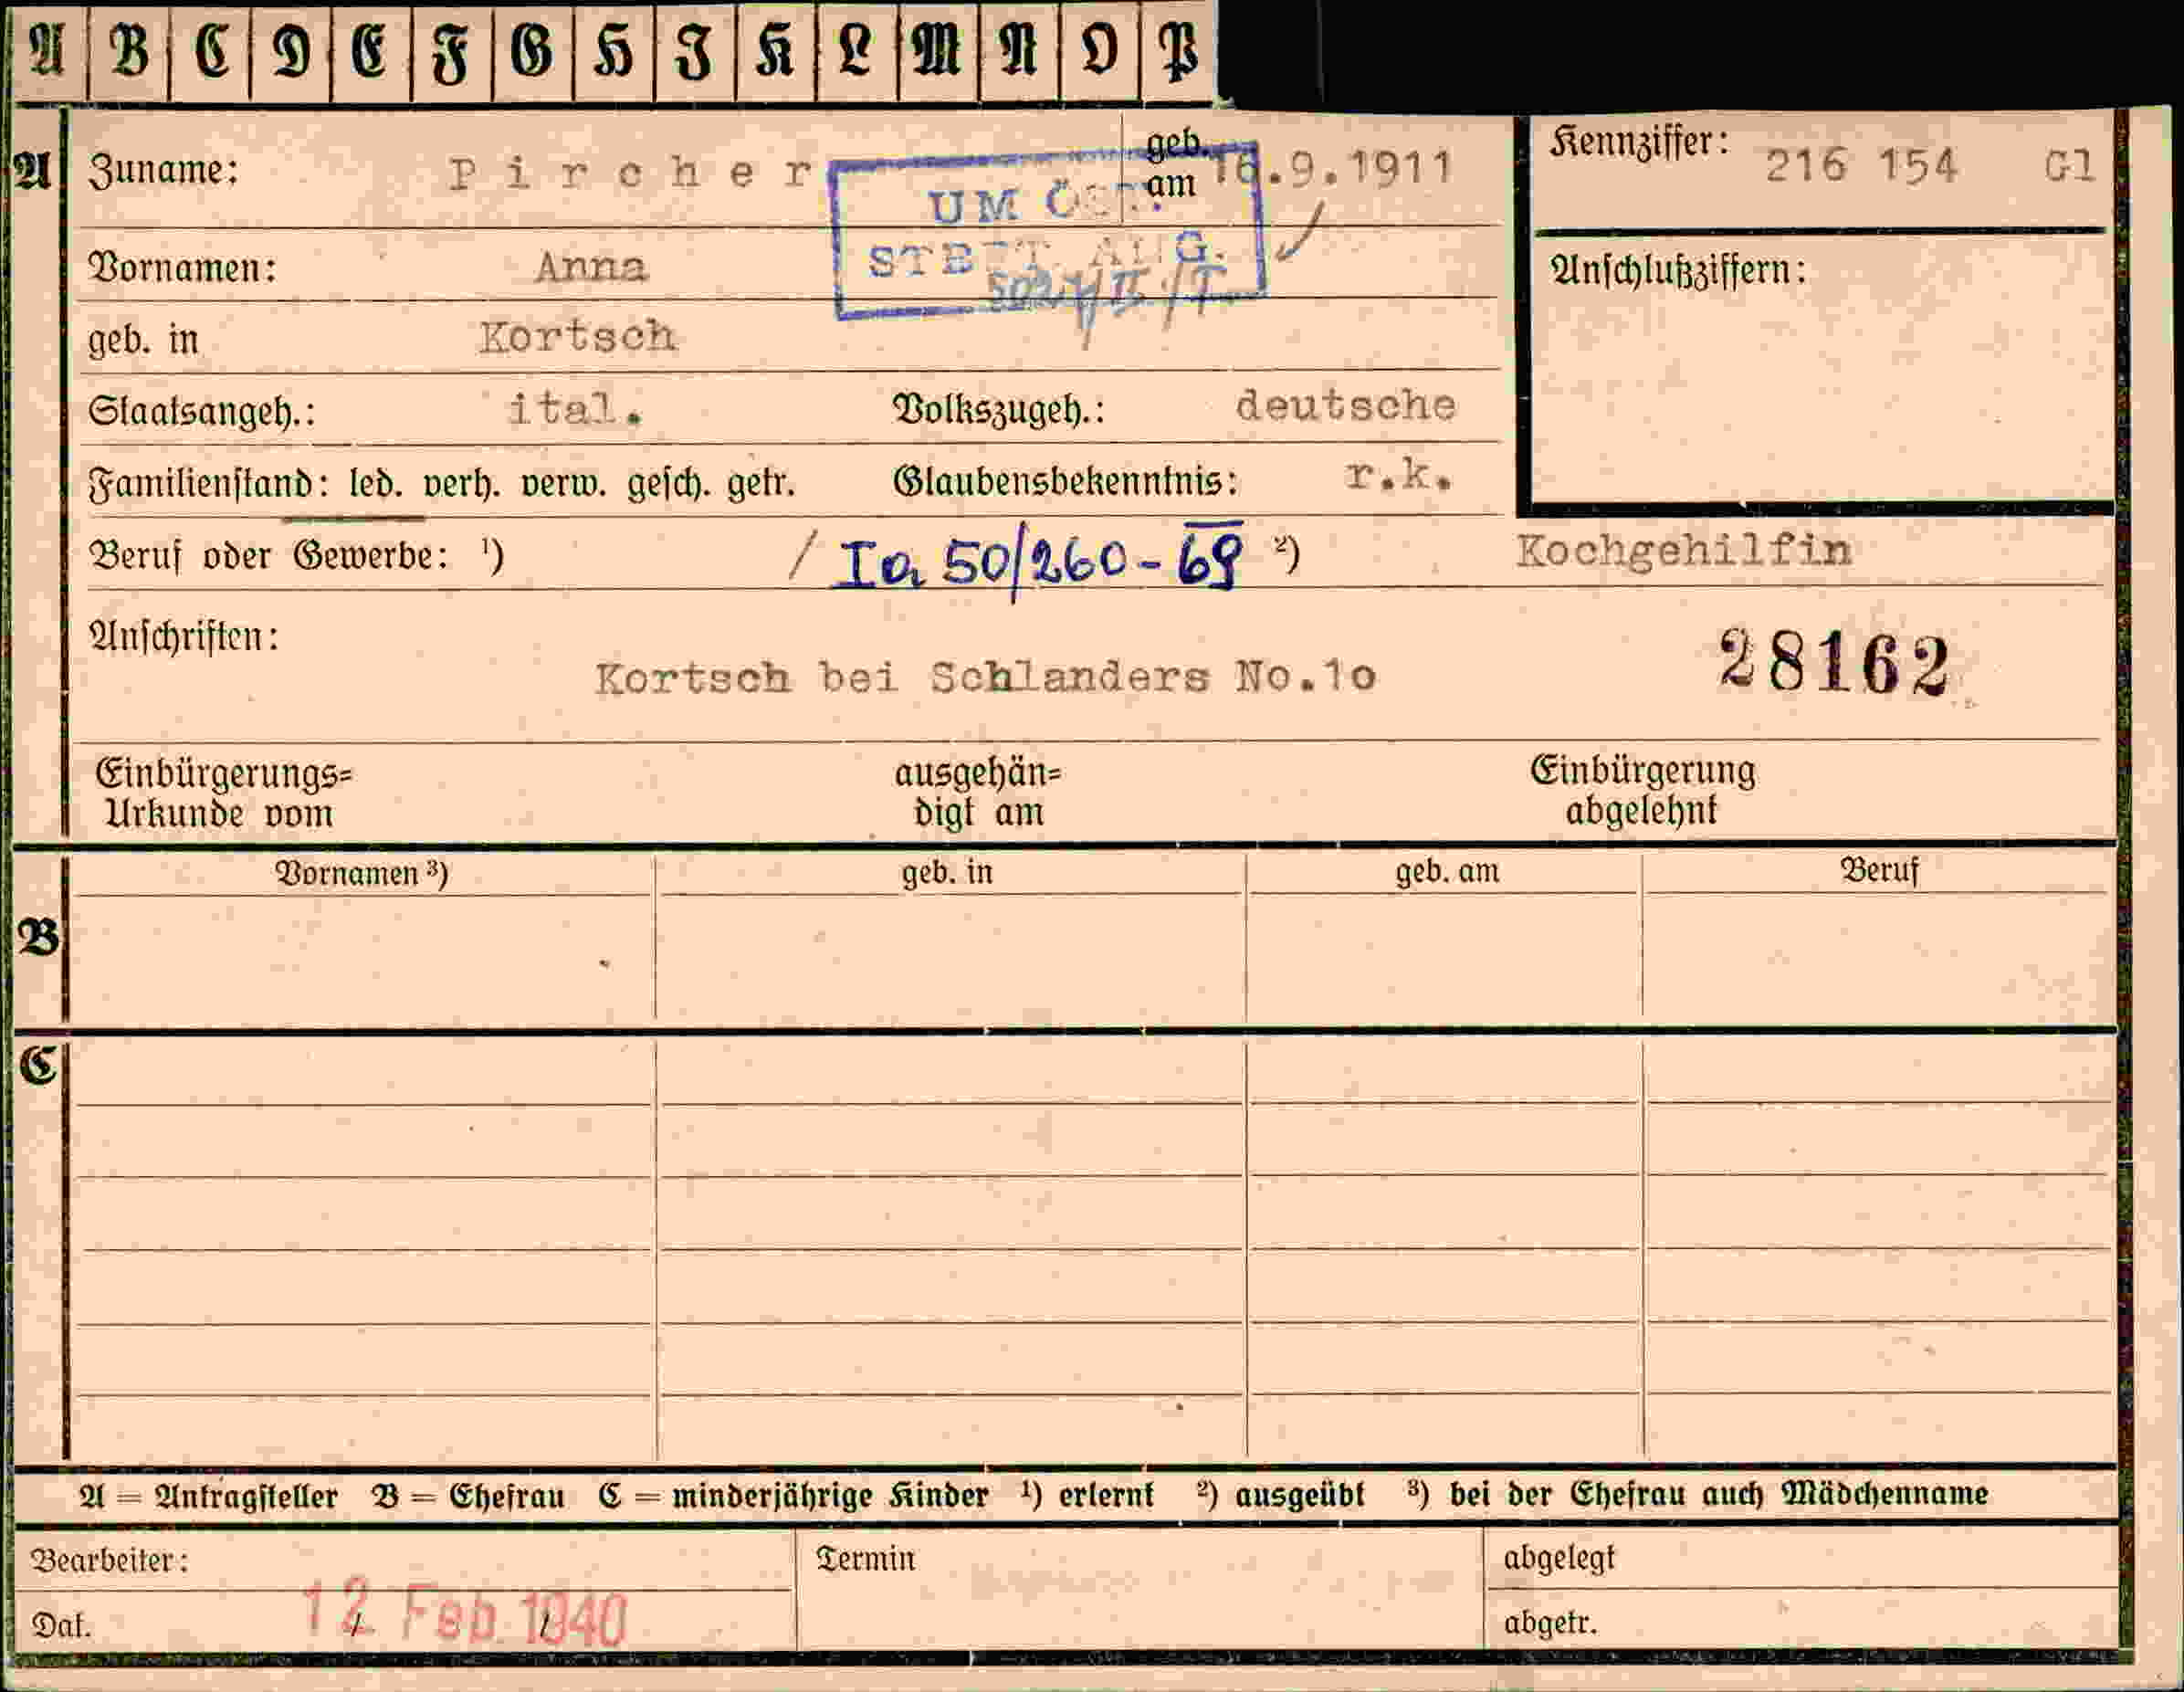 A B C D E F G H I K L M N O P
A Zuname: Pircher geb. am 16.9.1911 Kennziffer: 216 154 Gl
UM
Vornamen: Anna Anschlußziffern:
geb. in Kortsch
Staatsangeh.: ital. Volkszugeh.: deutsche
Familienstand: led. verh. verw. gesch. getr. Glaubensbekenntnis: r.k.
Beruf oder Gewerbe: ¹) / Ia 50/260-69 ²) Kochgehilfin
Anschriften:
Kortsch bei Schlanders No.1o 28162
Einbürgerungs= ausgehän= Einbürgerung
Urkunde vom digt am abgelehnt
Vornamen ³) geb. in geb. am Beruf
B
C
A = Antragsteller B = Ehefrau C = minderjährige Kinder ¹) erlernt ²) ausgeübt ³) bei der Ehefrau auch Mädchenname
Bearbeiter: Termin abgelegt
Dat. 12. Feb. 1940 abgetr.